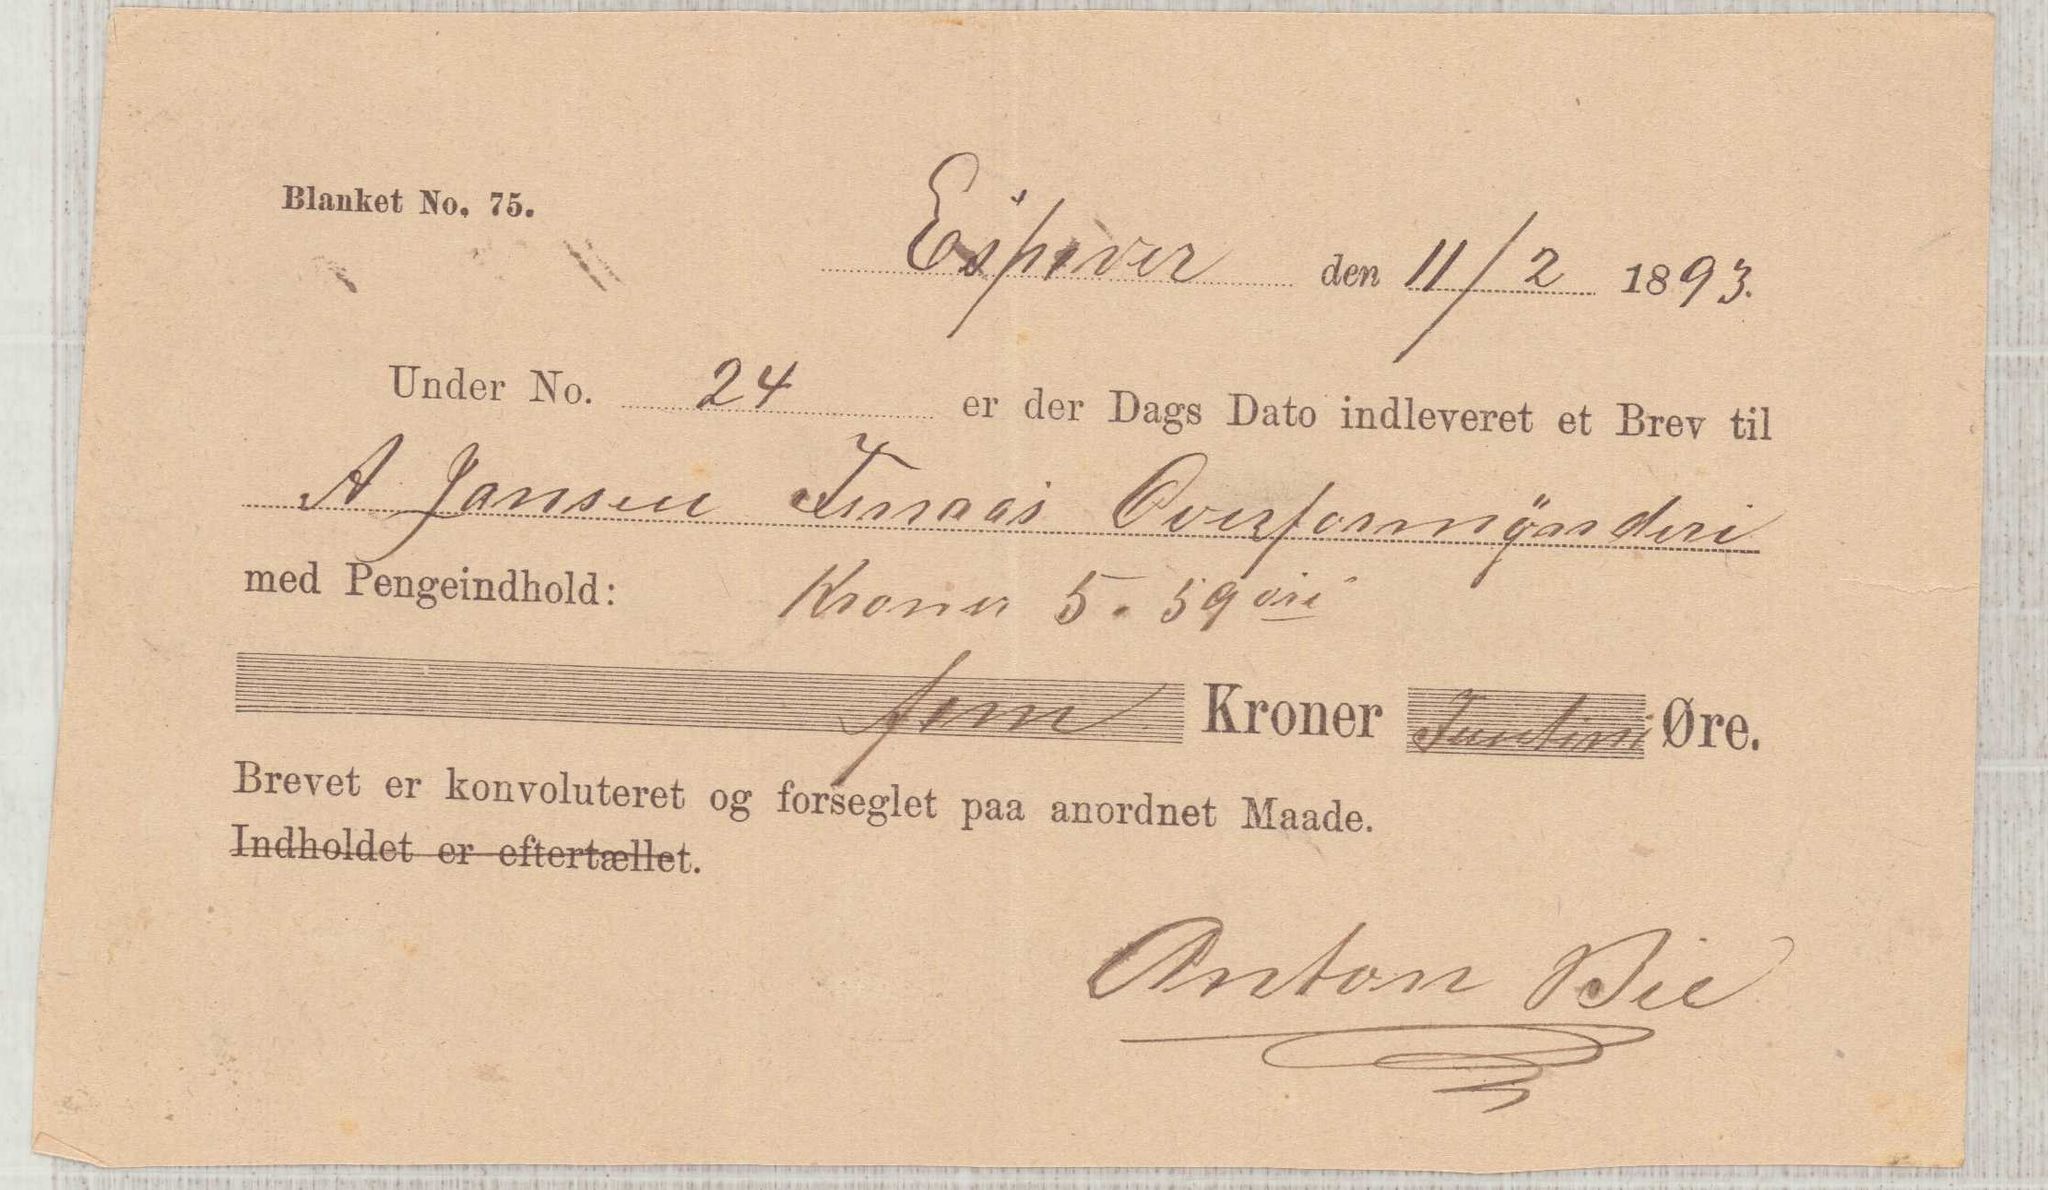 Blanket No. 75.
Espevær den 11/2 1893.
Under No. 24 er der Dags Dato indleveret et Brev til
A Jansen Finaas Overformynderi
med Pengeindhold: Kroner 5. 59 øre
fem Kroner Øre.
Brevet er konvoluteret og forseglet paa anordnet Maade.
Indholdet er eftertællet.
Anton Bie